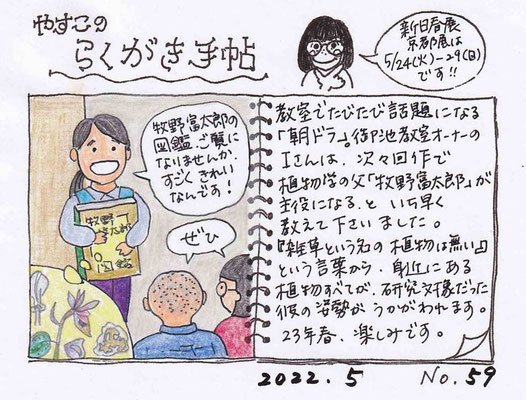 やすこの
らくがき手帖
新日春展
京都展は
5/24(火)-29(日)
です!!
牧野富太郎の
図鑑、ご覧に
なりませんか、
すごくきれい
なんです!
ぜひ
牧野
図鑑
教室でたびたび話題になる
「朝ドラ」。御池教室オーナーの
Iさんは、次々回作で
植物学の父「牧野富太郎」が
主役になる、と いち早く
教えて下さいました。
『雑草という名の植物は無い』
という言葉から、身近にある
植物すべてが、研究対象だった
彼の姿勢がうかがわれます。
23年春、楽しみです。
2022.5
No.59